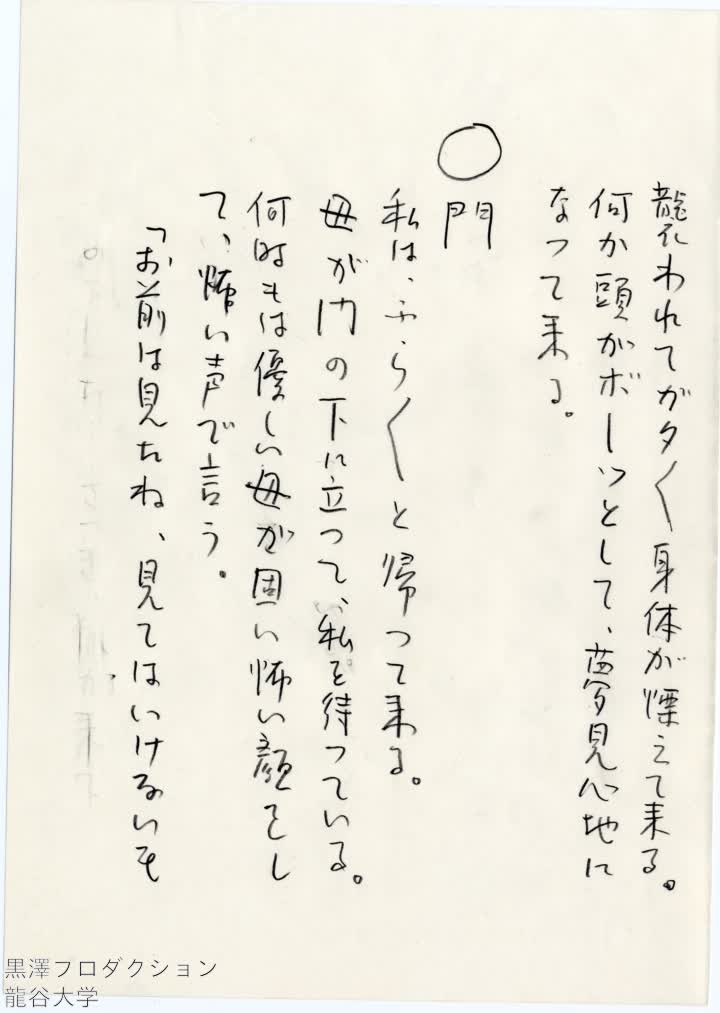 襲われてガタ〱身体が慄えて来る。
何か頭がボーッとして、夢見心地に
なって来る。
○門
私は、ふら〱と帰って来る。
母が門の下に立って、私を待っている。
何時もは優しい母が固い怖い顔をし
て、怖い声で言う。
「お前は見たね、見てはいけないも
黒澤プロダクション
龍谷大学